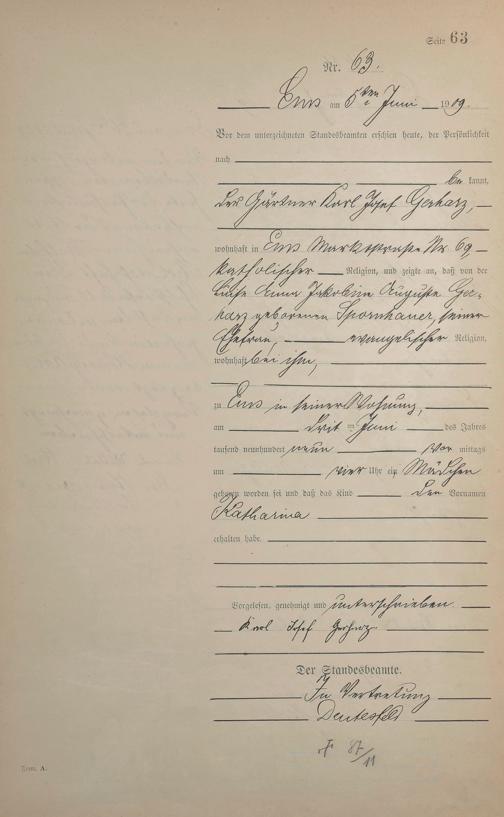 Seite 63
Nr. 63.
Ems am 5ten Juni 1909.
Vor dem unterzeichneten Standesbeamten erschien heute, der Persönlichkeit
nach
be kannt,
der Gärtner Karl Josef Gerharz,
wohnhaft in Ems Marktstraße Nr. 69
katholischer Religion, und zeigte an, daß von der
Anna Jakobine Auguste Ger-
harz geborenen Spornhauer, seiner
Ehefrau, evangelischer Religion,
wohnhaft bei ihm,
zu Ems in seiner Wohnung,
am drit ten Juni des Jahres
tausend neunhundert neun Vor mittags
um vier Uhr ein Mädchen
geboren worden sei und daß das Kind den Vornamen
Katharina
erhalten habe.
Vorgelesen, genehmigt und unterschrieben.
Karl Josef Gerharz
Der Standesbeamte.
In Vertretung
87/11
Form. A.